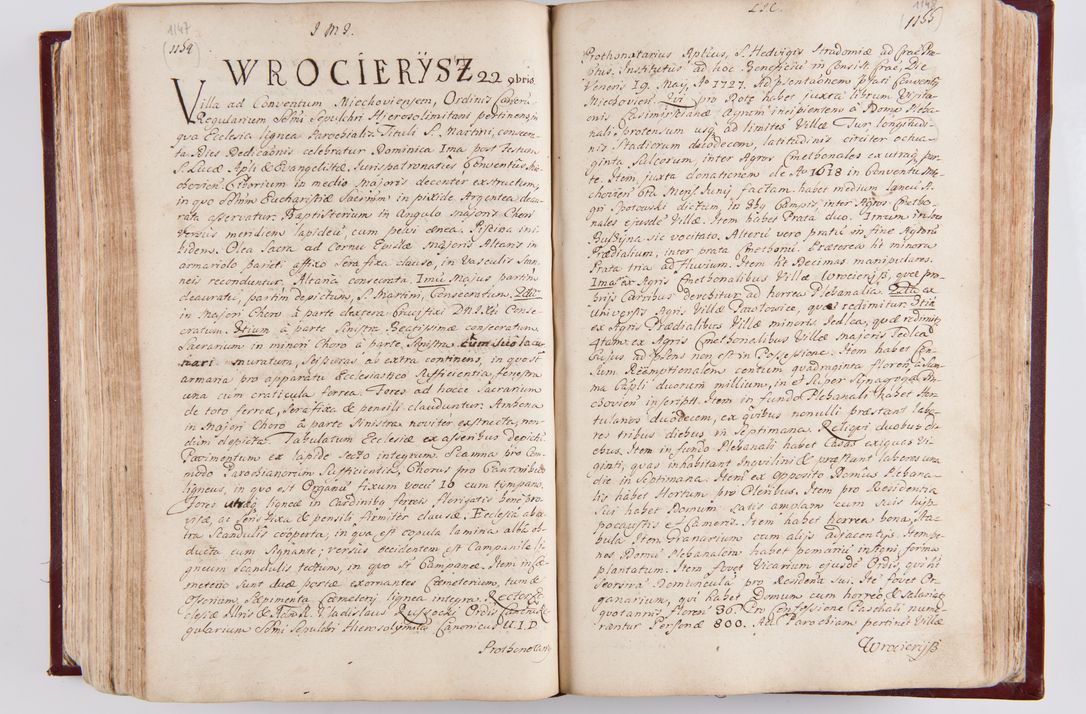 1147
(1154)
J M J.
WROCIERŸSZ 22 9bris
Villa ad Conventum Miechoviensem, Ordinis Canoni-
Regularium Sstmi Sepulchri Hierosolimitani pertinens, in
qua Ecclesia lignea Parochialis, Tituli S. Martini, consecra-
ta. Dies Dedicaõnis celebratur Dominica Ima post Festum
S. Lucæ Apli & Evangelistæ, Jurispatronatûs Conventûs Mie-
chovien. Ciborium in medio Majoris decenter exstructum,
in quo SSmum Eucharistiæ Sacrum in pixide Argentea deau-
rata asservatur. Baptisterium in Angulo majoris Chori
versus meridiem lapideũ, cum pelvi ænea. Piscina ini-
bidens. Olea Sacra ad Cornu Epistolæ Majoris Altaris in
armariolo parieti affixo Sera fixa clauso, in Vasculis Stan-
neis reconduntur. Altaria consecrata. Imũ Majus partim
deauratũ, partim depictum, S. Martini, Consecratum. 2dum
in Majori Choro à parte dextera Crucifixi DNJXti Conse-
cratum. 3tium à parte Sinistra Beatissimæ consecratum.
Sacrarium in minori Choro à parte Sinistra cum suo lacu-
nari muratum, Scissuras ab extra continens, in quo st
armaria pro apparatu Ecclesiastico sufficientia, fenestra
una cum craticula ferrea. Fores ad hocce Sacrarium
de toto ferreæ, Sera fixa & pensili clauduntur. Ambona
in Majori Choro à parte Sinistra noviter exstructa, non-
dum depicta. Tabulatum Ecclesiæ ex asseribus depictũ
Pavimentum ex lapide Secto integrum. Scamna pro Com-
modo Parochianorum Sufficientia. Chorus pro Cantoribus
ligneus, in quo est Organũ fixum vocũ 10 cum tympano.
Fores utræq ligneæ in Cardinibus ferreis florisatis bene pro-
vitæ, ac Sera fixa & pensili firmiter clausæ. Ecclesia ab ex-
tra Scandulis coôperta, in qua est copula lamina alba ob-
ducta cum Signante; versus occidentem est Campanile li-
gneum Scandulis tectum, in quo St Campanæ. Item in Cæ-
meterio sunt duæ portæ exornantes Cæmeterium, tum &
Ossorium. Sæpimenta Cæmeterij lignea integra. Rector Ec-
clesiæ Illris & Vladislaus Russocki Ordis Canoni Re-
gularium SSmi Sepulchri Hierosolymitani Canonicus, U.I.D.
Prothonotary
1148
1155
LIE.
Prothonotarius Aplicus, S. Hedvigis Stradomiæ ad Crac Præ-
ptus. Institutus ad hoc Beneficiũ in Consist. Crac, Die
Veneris 19. Maij, Ao 1727. ad pntaaõnem Prati Conventus
Miechovien. Qui pro Dote habet juxta librum Visita-
onis Casimirianæ Agrum incipientem à Domo Pleba-
nali protensum usq ad limites Villæ Tur longitudi-
nis Stadiorum duodecem, latitudinis circiter octua-
ginta Sulcorum, inter Agros Cmethonales ex utraq par-
te. Item juxta donationem de Ao 1618 in Conventu Mie-
chovien 6ta Mens. Junij factam habet medium laneũ A-
gri Spotowski dictum, in 3bq Campis, inter Agros Cmetho-
nales ejusdẽ Villæ. Item habet Prata duo. Imum in loco
Busdÿna sic vocitato. Alterũ vero pratũ in fine Agrorũ
Prædialium, inter prata Cmethonũ. Præterea ht minora
Prata tria ad fluvium. Item ht Decimas manipulares.
Ima ex Agris Cmethonalibus Villæ Wrocierÿß, quæ pro-
brijs Curribus devehitur ad horrea Plebanalia. 2da ex
Universis Agris Villæ Pawlowice, quæ redimitur. 3tia
ex Agris Prædialibus Villæ minoris Sędlca, quæ redimit
4tam ex Agris Cmethonalibus Villæ majoris Tedlca
cujus ad pntens non est in Possessione. Item habet Cen-
sum Reêmptionalem centum quadraginta floren, à Sum-
ma Caplĩ duorum millium, in & Super Synagoga Mie-
choviensi inscriptũ. Item in fundo Plebanali habet Hor-
tulanos duodecem, ex quibus nonulli præstant labo-
res tribus diebus in Septimana. Reliqui duobus di-
ebus. Item in fundo Plebanali habet Casas exiguas vi-
ginti, quas inhabitant Inquilini & præstant labores una
die in Septimana. Item ex opposito Domûs Plebana-
lis habet Hortum pro Oleribus. Item pro Residentia
Sui habet Domum Satis amplam cum suis hip-
pocaustis & Cameris. Item habet horrea bona, Sta-
bula. Item Granarium cum alijs adjacentijs. Item pe-
nes Domũ Plebanalem habet pomariũ instar, forma
plantatum. Item fovet Vicarium ejusdẽ Ordis, qui ht
Seorsivã Domunculã pro Residẽtia Sui. Itẽ fovet Or-
ganarium, qui habet Domum cum horreo & Salariat
quotannis floren 36. Pro Confessione Paschali nume-
rantur Personæ 800. Ad Parochiam pertinet Villæ
Wrocierÿß